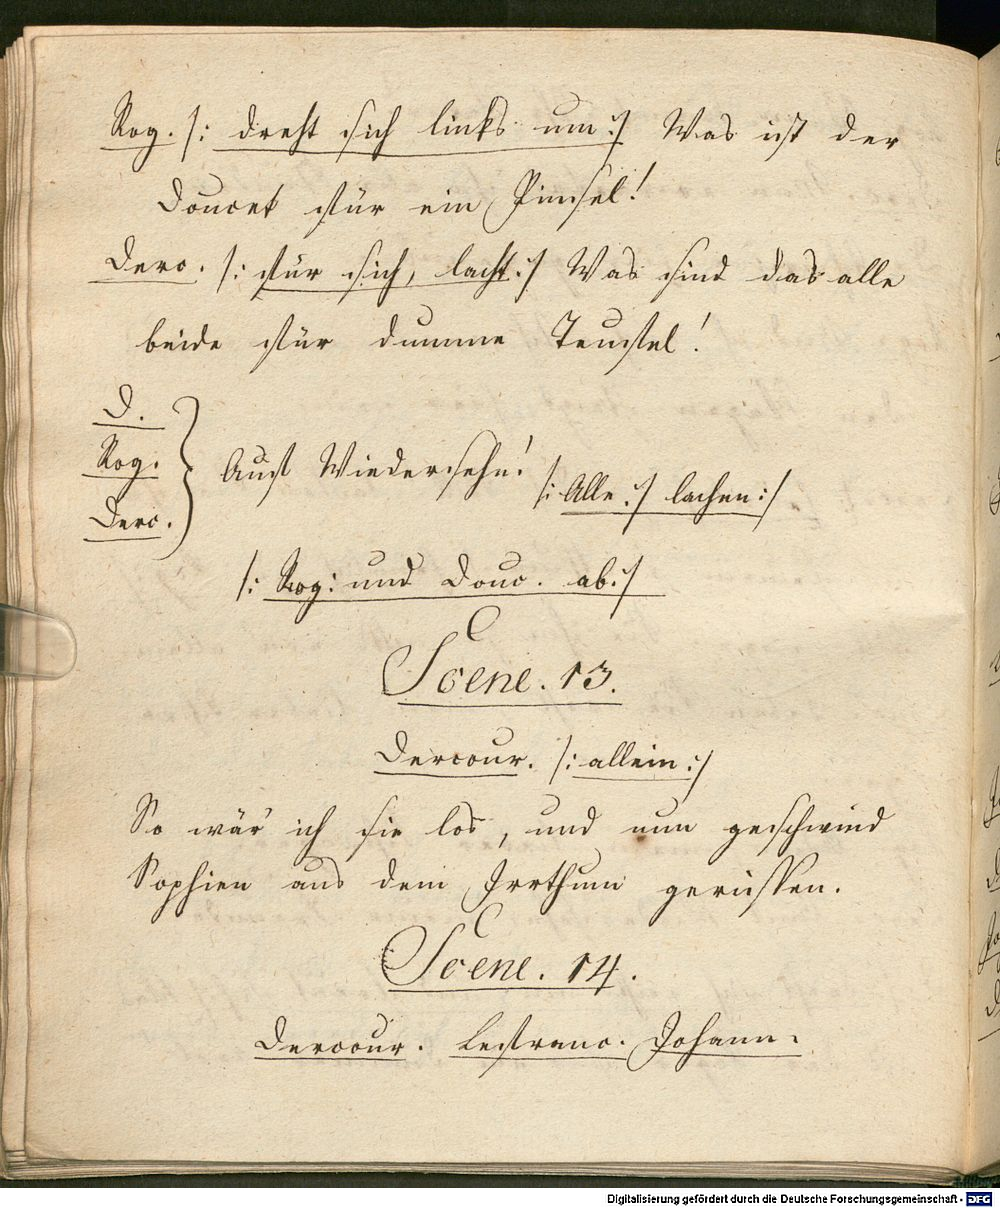 Rog. /: dreht sich links um :/ Was ist der
Doucet für ein Pinsel!
Derc. /: für sich, lacht :/ Was sind das alle
beide für dumme Teufel!
D.
Rog.
Derc.
Auf Wiedersehn! /: Alle :/ lachen :/
/: Rog: und Douc. ab :/
Scene. 13.
Dercour. /: allein :/
So wär' ich sie los, und nun geschwind
Sophien aus dem Irrthum gerissen.
Scene. 14.
Dercour. Lestranc. Johann.
Digitalisierung gefördert durch die Deutsche Forschungsgemeinschaft - DFG